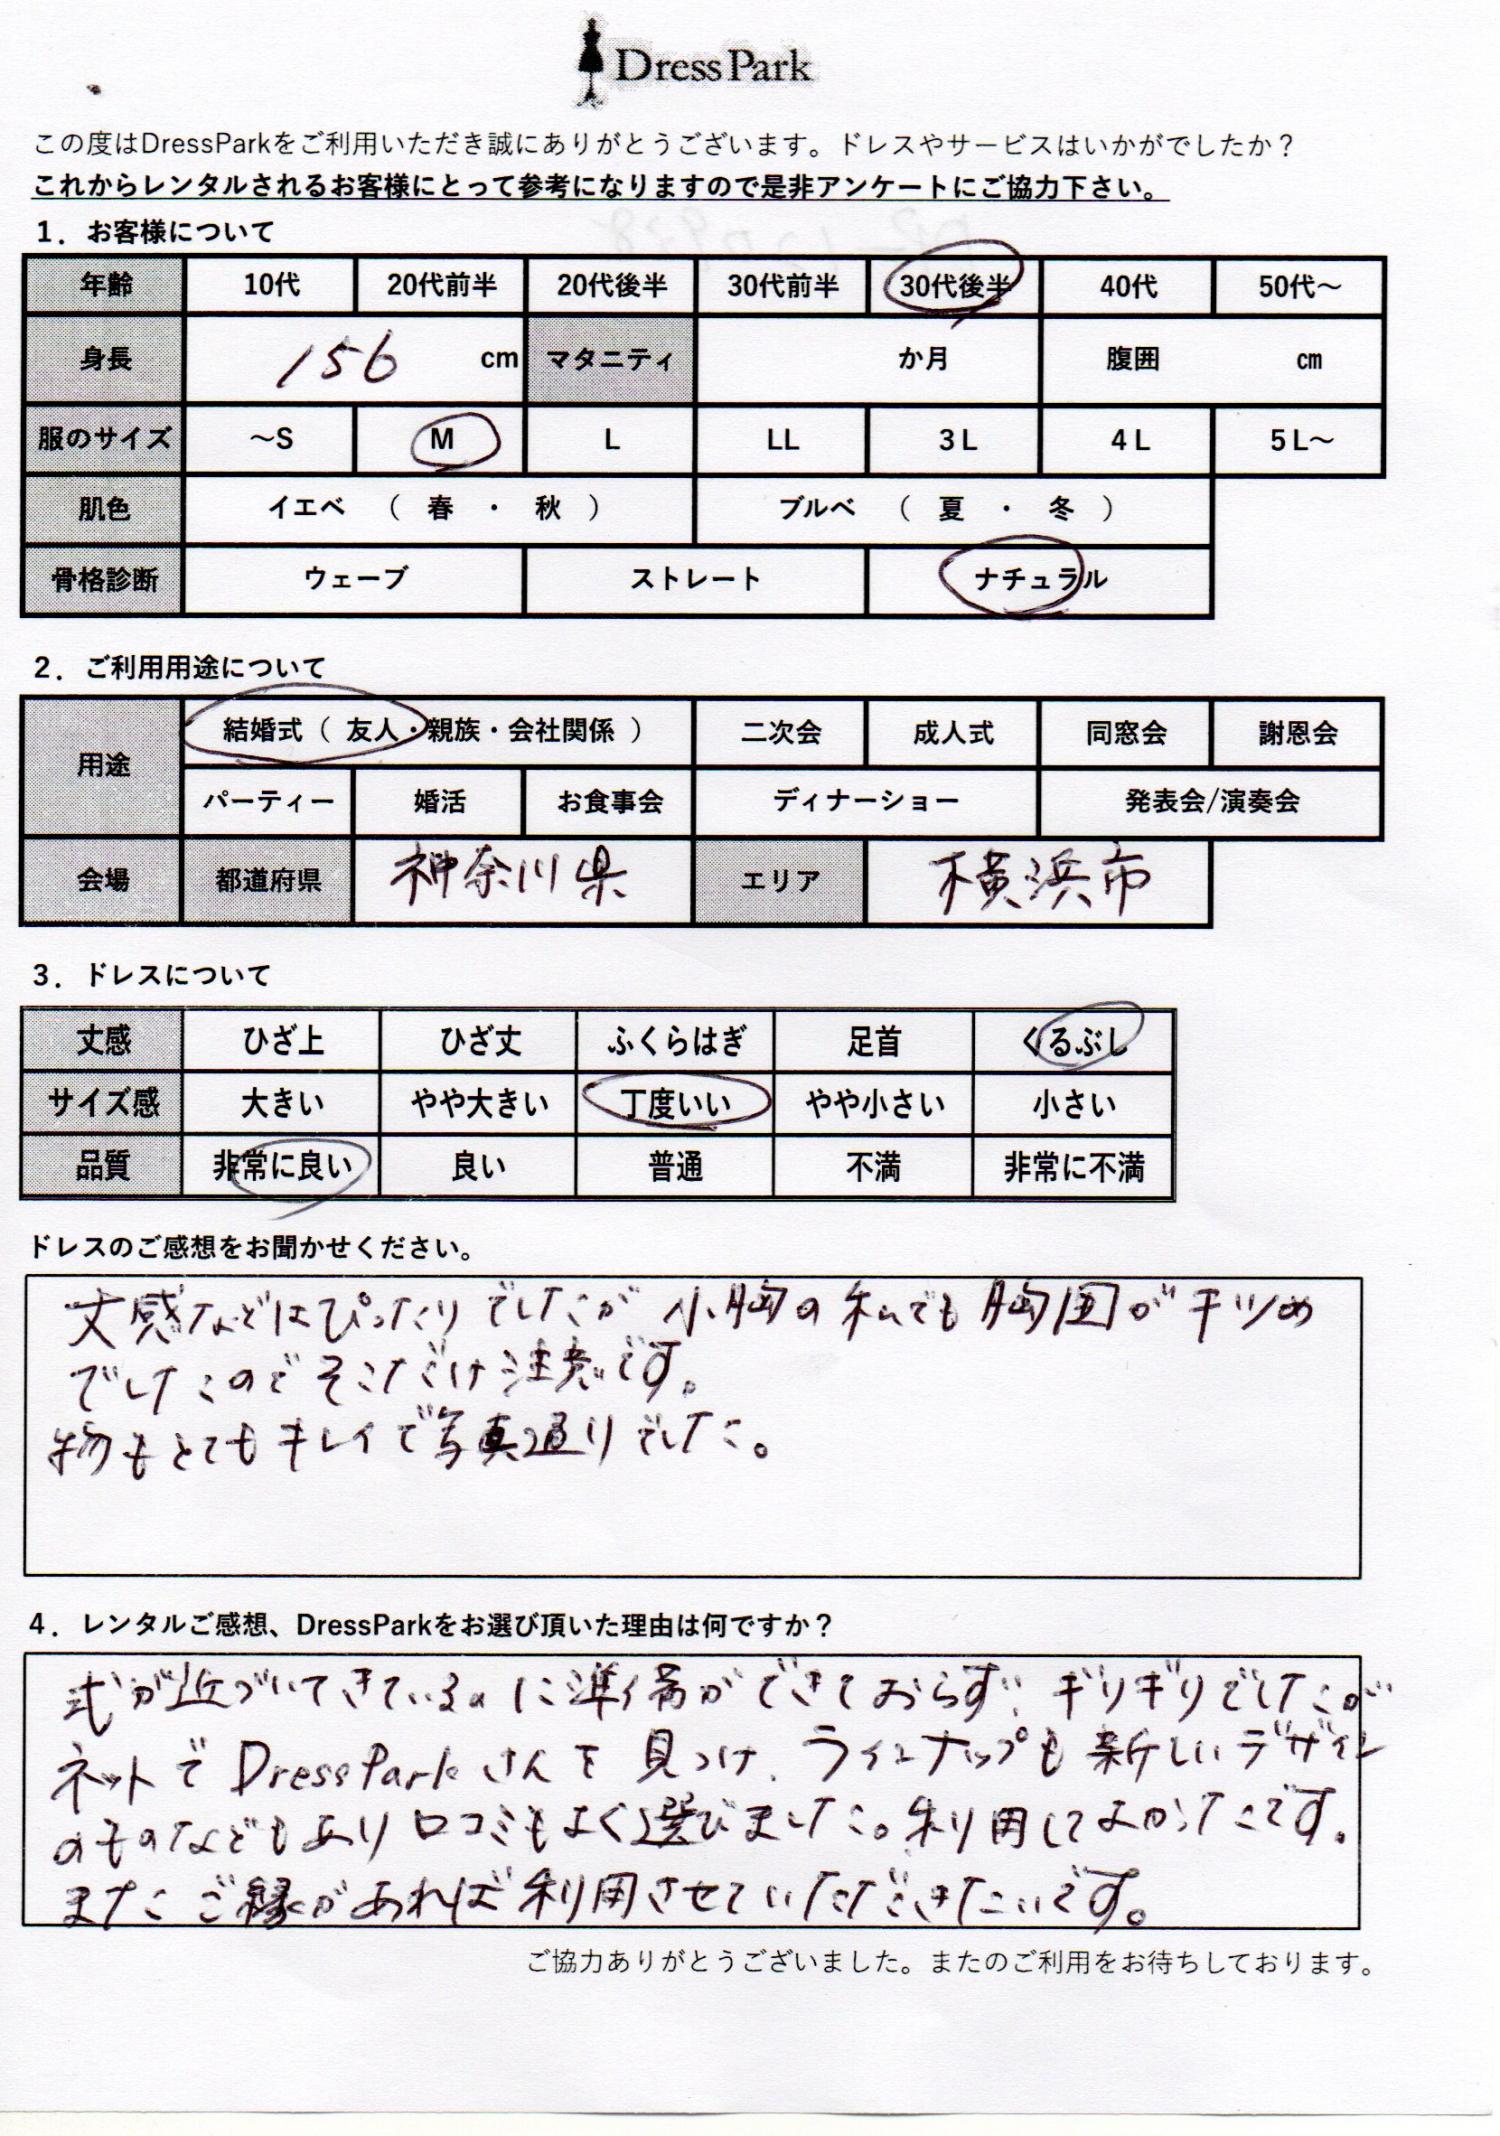 DressPark
この度はDressParkをご利用いただき誠にありがとうございます。ドレスやサービスはいかがでしたか？
これからレンタルされるお客様にとって参考になりますので是非アンケートにご協力下さい。
1．お客様について
年齢 10代 20代前半 20代後半 30代前半 30代後半 40代 50代～
身長 156 cm マタニティ か月 腹囲 ㎝
服のサイズ ～S M L LL 3L 4L 5L～
肌色 イエベ （ 春 ・ 秋 ） ブルベ （ 夏 ・ 冬 ）
骨格診断 ウェーブ ストレート ナチュラル
2．ご利用用途について
用途 結婚式（ 友人・親族・会社関係 ） 二次会 成人式 同窓会 謝恩会
パーティー 婚活 お食事会 ディナーショー 発表会/演奏会
会場 都道府県 神奈川県 エリア 横浜市
3．ドレスについて
丈感 ひざ上 ひざ丈 ふくらはぎ 足首 くるぶし
サイズ感 大きい やや大きい 丁度いい やや小さい 小さい
品質 非常に良い 良い 普通 不満 非常に不満
ドレスのご感想をお聞かせください。
丈感などはぴったりでしたが小胸の私でも胸囲がキツめ
でしたのでそこだけ注意です。
物もとてもキレイで写真通りでした。
4．レンタルご感想、DressParkをお選び頂いた理由は何ですか？
式が近づいてきているのに準備ができておらず、ギリギリでしたが
ネットでDressParkさんを見つけ、ラインナップも新しいデザイン
のものなどもあり口コミもよく選びました。利用してよかったです。
またご縁があれば利用させていただきたいです。
ご協力ありがとうございました。またのご利用をお待ちしております。